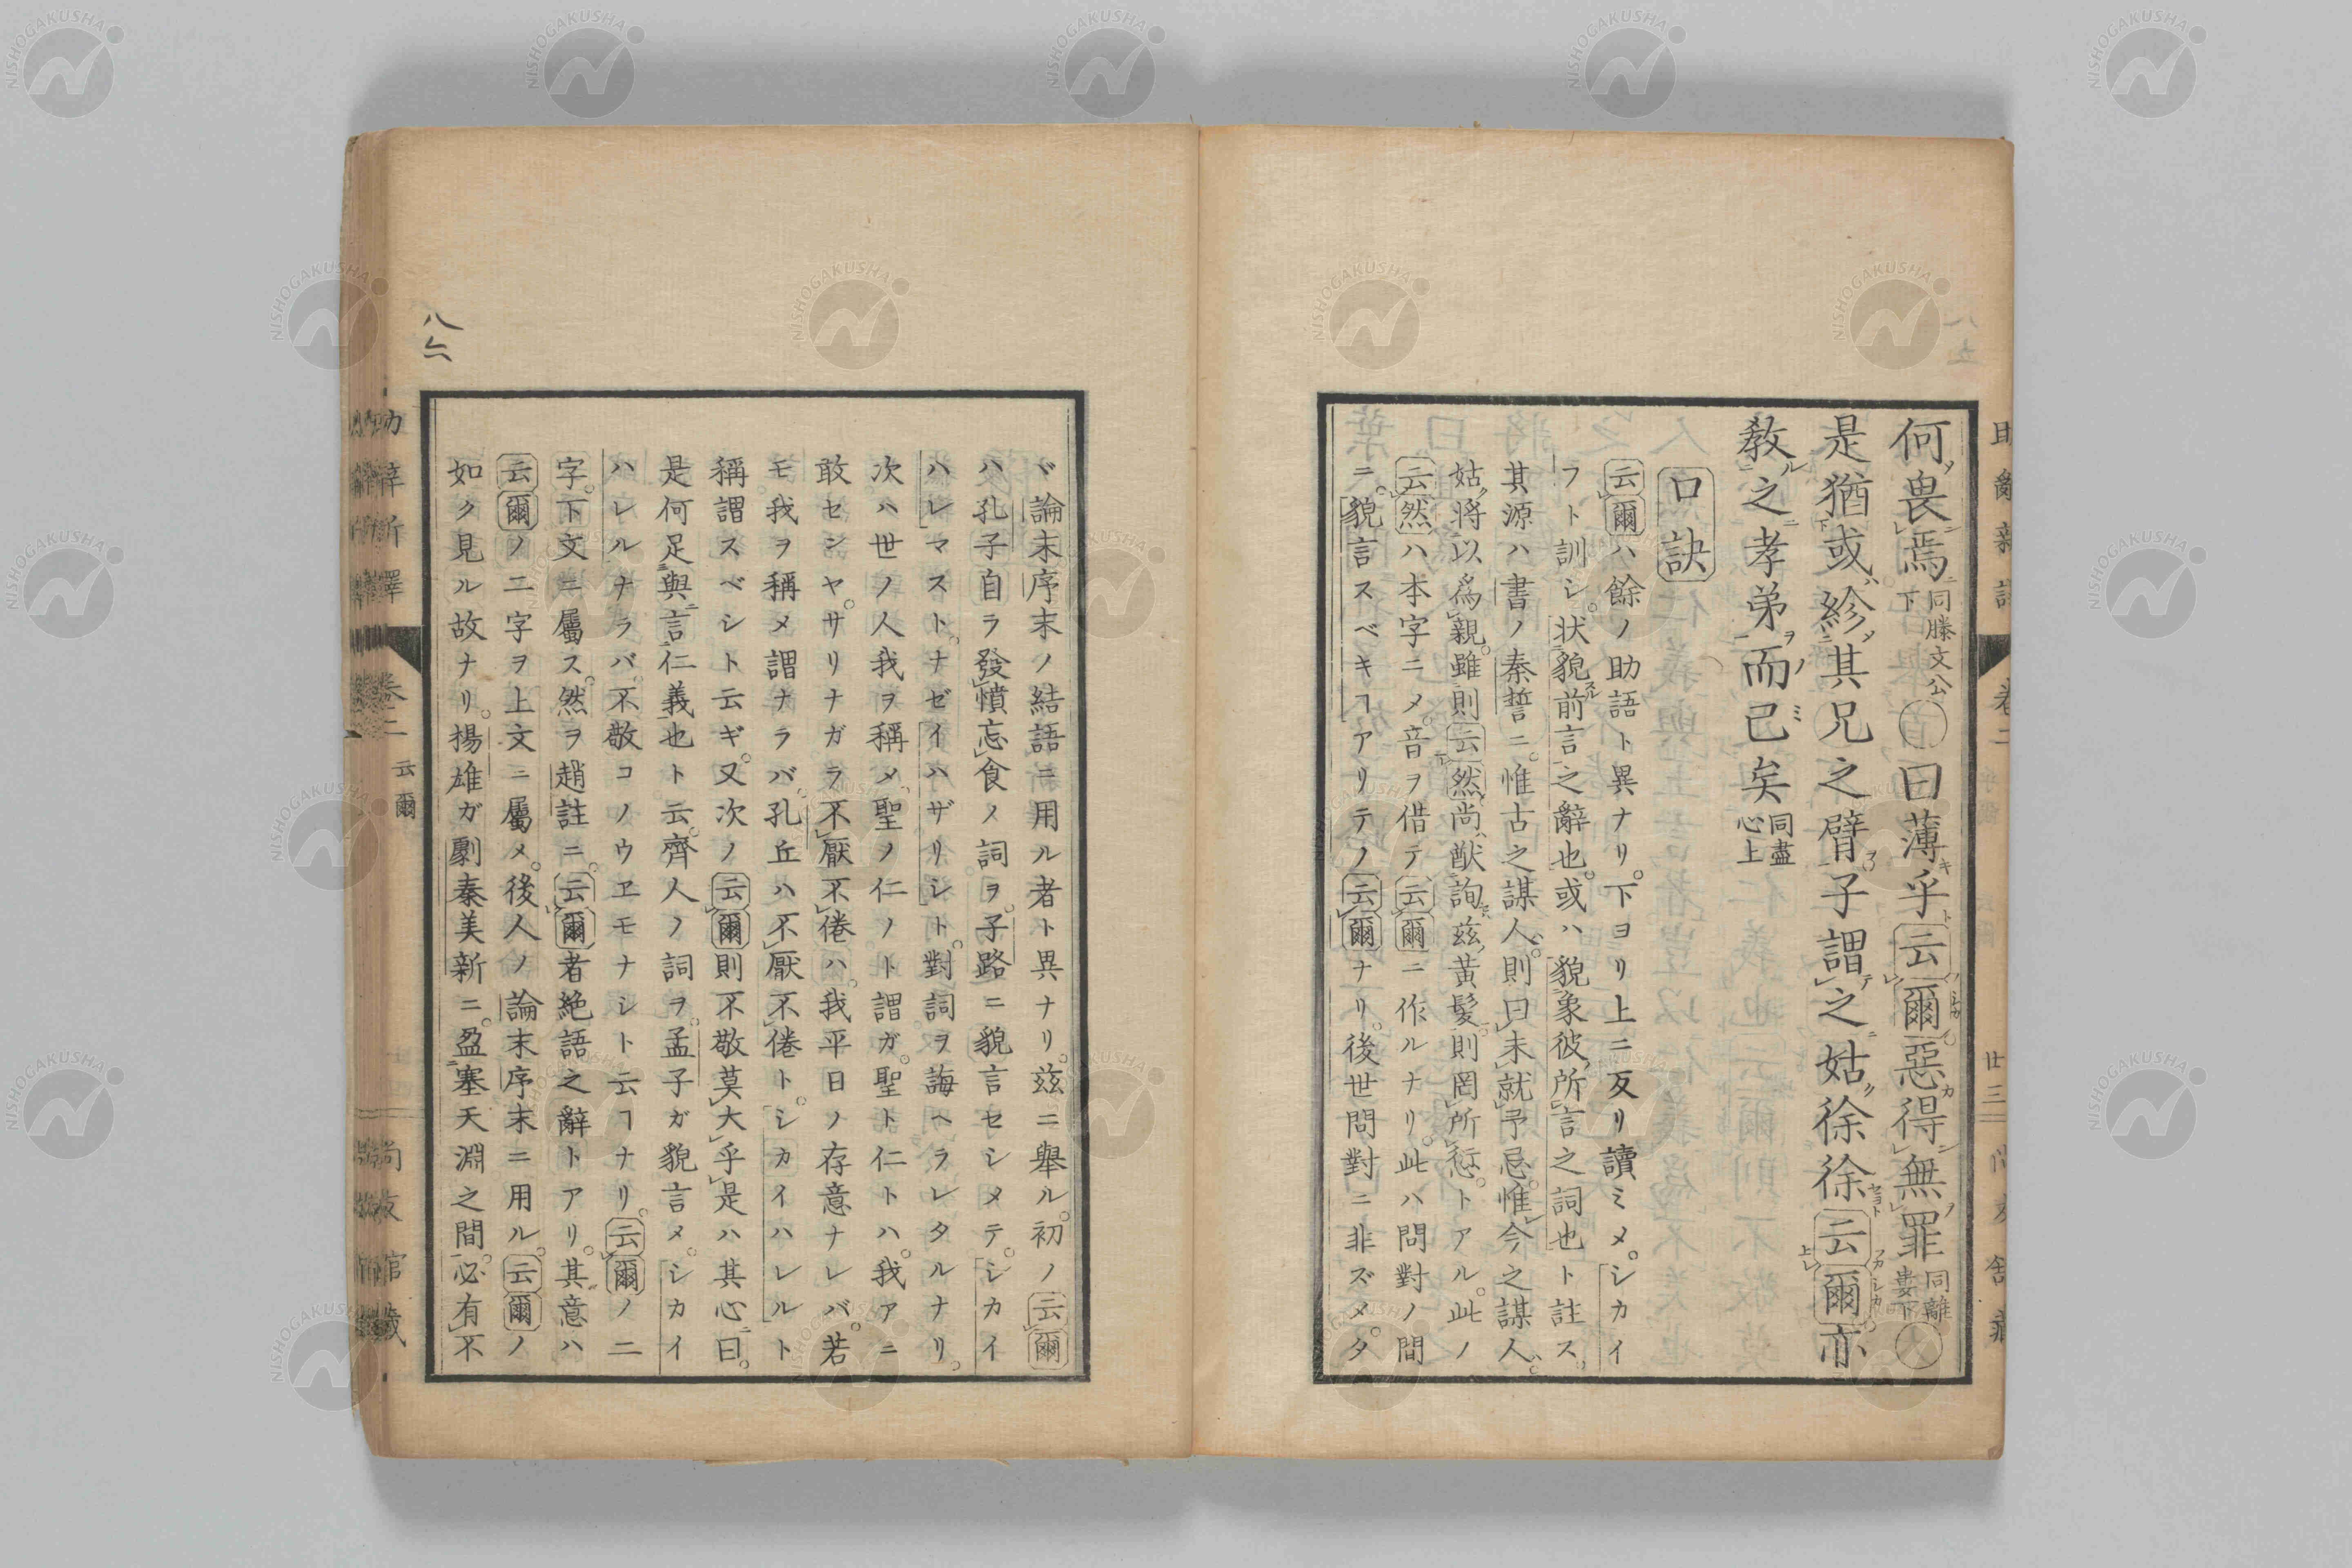 何畏焉同滕文公下〇曰薄乎云爾惡得無罪同離婁下〇
是猶或紾其兄之臂子謂之姑徐徐云爾亦
教之孝弟而已矣同盡心上
口訣
云爾ハ餘ノ助語ト異ナリ。下ヨリ上ニ反リ讀ミメ。シカイ
フト訓シ。状貌前言之辭也。或ハ貌象彼所言之詞也ト註ス。
其源ハ書ノ秦誓ニ。惟古之謀人。則曰未就予忌惟今之謀人。
姑將以爲親。雖則云然尚猷詢茲黃髪則罔所愆。トアル。此ノ
云然ハ本字ニメ。音ヲ借テ云爾ニ作ルナリ。此ハ問對ノ間
ニ。貌言スベキヿアリテノ云爾ナリ。後世問對ニ非ズメ。タ
卷二
廿三
八六
ヾ論末序末ノ結語ニ用ル者ト異ナリ。茲ニ舉ル。初ノ云爾
ハ。孔子自ラ發憤忘食ノ詞ヲ。子路ニ貌言セシメテ。シカイ
ハレマスト。ナゼイハザリシト。對詞ヲ誨ヘラレタルナリ。
次ハ世ノ人我ヲ稱メ聖ノ仁ノト謂ガ。聖ト仁トハ。我アニ
敢センヤ。サリナガラ不厭不倦ハ。我平日ノ存意ナレバ。若
モ我ヲ稱メ謂ナラバ。孔丘ハ不厭不倦ト。シカイハレルト
稱謂スベシト云ギ。又次ノ云爾則不敬莫大乎是ハ其心曰。
是何足與言仁義也ト云。齊人ノ詞ヲ。孟子ガ貌言メ。シカイ
ハレルナラバ。不敬コノウヱモナシト云ヿナリ。云爾ノ二
字。下文ニ屬ス。然ヲ趙註ニ。云爾者絶語之辭トアリ。其意ハ
云爾ノ二字ヲ上文ニ屬メ。後人ノ論末序末ニ用ル。云爾ノ
如ク見ル故ナリ。揚雄ガ劇秦美新ニ。盈塞天淵之間。必有不
卷二
云爾